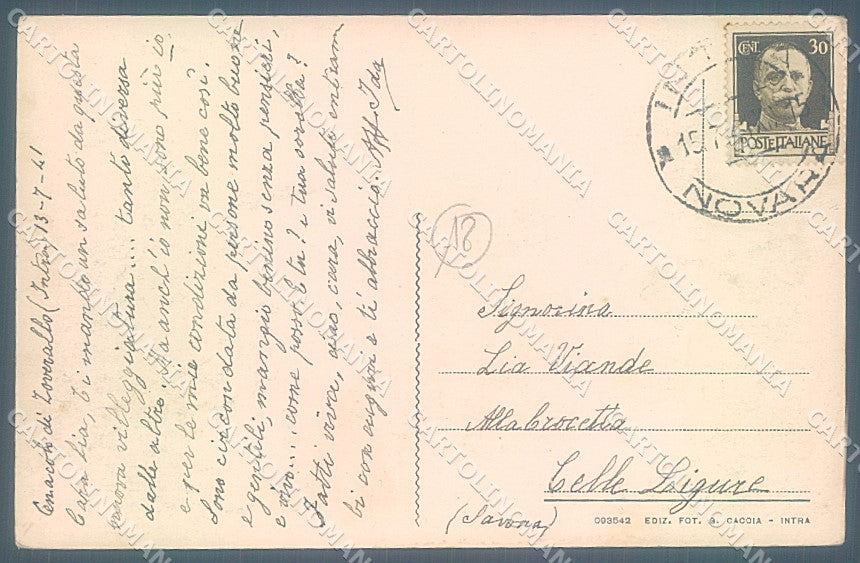 Cenacolo di Zoverallo (Intra) 13-7-41
Cara Lia, ti mando un saluto da questa
nuova villeggiatura.... tanto diversa
dalle altre! Ma anch'io non sono più io
e per le mie condizioni va bene così.
Sono circondata da persone molto buone
e gentili, mangio benino senza pensieri,
e vivo.... come posso. E tu? e tua sorella?
Fatti viva, ciao, cara, vi saluto entram
bi con auguri e ti abbraccio. Aff Ida
18
Signorina
Lia Viande
Alla Crocetta
Celle Ligure
(Savona)
CENT. 30
POSTE ITALIANE
15
NOVARA
093542 EDIZ. FOT. S. CACCIA - INTRA
CARTOLINOMANIA